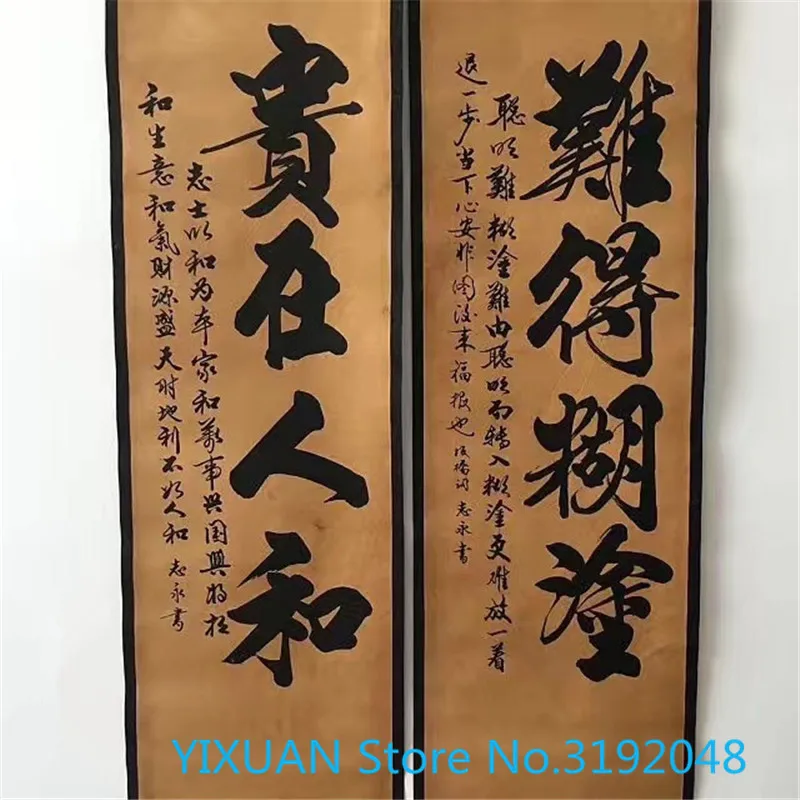 難得糊塗
聪明難糊塗難由聪明而轉入糊塗更难放一着
退一步当下心安非图后来福报也 板橋詞 志永書
貴在人和
志士以和为本家和萬事兴国興将相
和生意和氣财源盛天时地利不如人和 志永書
YIXUAN Store No.3192048